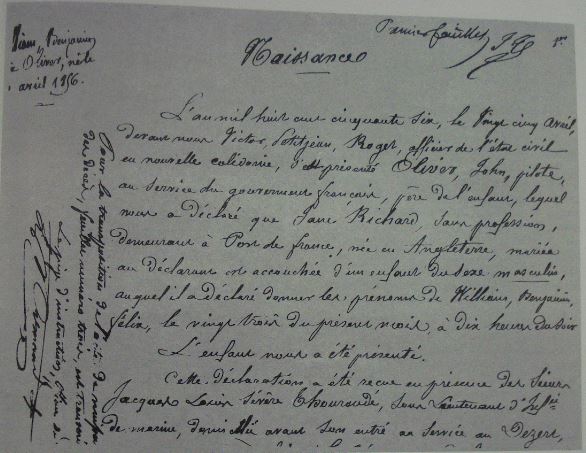 Premier feuillet
1er
Naissance
Benjamin
Oliver, né le
avril 1856.
L'an mil huit cent cinquante six, le vingt cinq avril,
devant nous Victor, Petitjean, Roger, officier de l'état civil
en nouvelle calédonie, s'est présenté Oliver, John, pilote,
au service du gouvernement français, père de l'enfant, lequel
nous a déclaré que Jane Richard, sans profession,
demeurant à Port de france, née en Angleterre, mariée
au déclarant est accouchée d'un enfant du sexe masculin,
auquel il a déclaré donner les prénoms de William, Benjamin,
félix, le vingt trois du present mois, à dix heures du soir
L'enfant nous a été présenté.
Cette déclaration a été reçue en présence des Sieurs
Jacques Louis Sévère, sous Lieutenant d'Inf.ie
de marine, domicilié avant son entré au service au Dezert,
Pour la transposition de l'acte de
des décès, feuillet numéro trois, est
Le juge d'instruction,